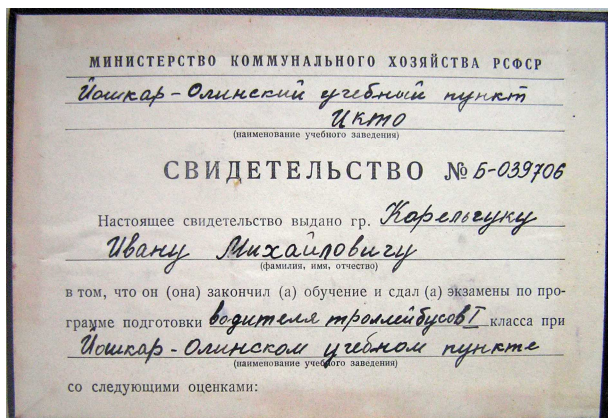 МИНИСТЕРСТВО КОММУНАЛЬНОГО ХОЗЯЙСТВА РСФСР
Йошкар-Олинский учебный пункт
ЦКТО
(наименование учебного заведения)
СВИДЕТЕЛЬСТВО № Б-039706
Настоящее свидетельство выдано гр. Карельчуку
Ивану Михайловичу
(фамилия, имя, отчество)
в том, что он (она) закончил (а) обучение и сдал (а) экзамены по про-
грамме подготовки водителя троллейбусов I класса при
Йошкар-Олинском учебном пункте
(наименование учебного заведения)
со следующими оценками: